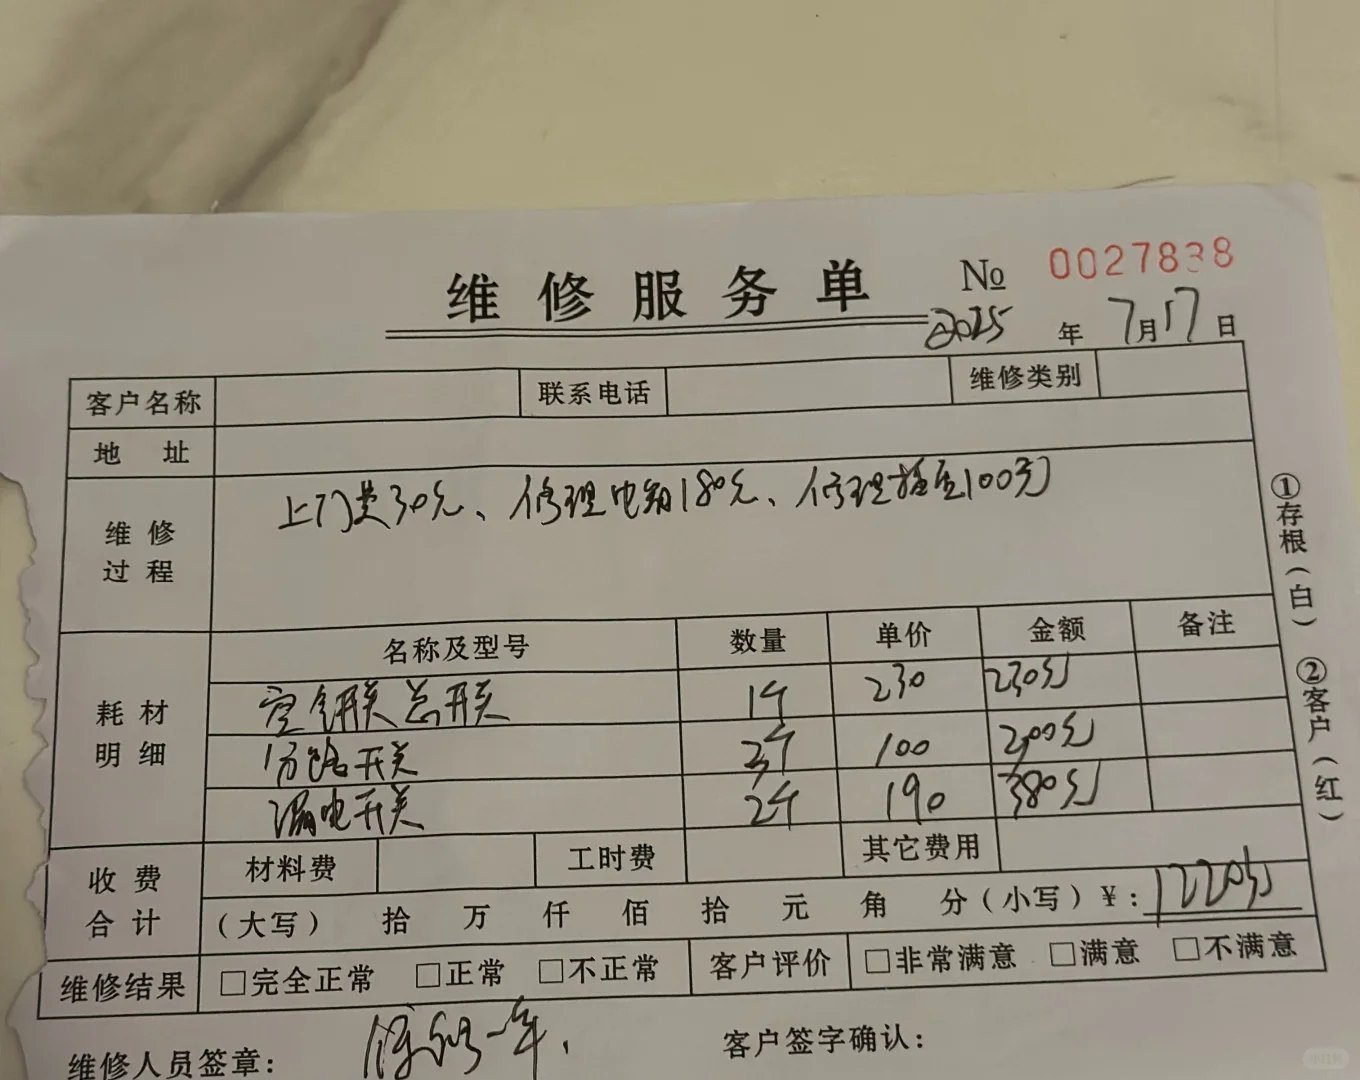 维修服务单 № 0027838
2025年7月17日
客户名称 联系电话 维修类别
地 址
维修过程 上门费30元、修理电箱180元、修理插座100元
耗材明细 名称及型号 数量 单价 金额 备注
空气开关总开关 1个 230 230元
分路开关 2个 100 200元
漏电开关 2个 190 380元
收费合计 材料费 工时费 其它费用
(大写) 拾 万 仟 佰 拾 元 角 分(小写)¥:1220元
维修结果 □完全正常 □正常 □不正常 客户评价 □非常满意 □满意 □不满意
维修人员签章: 保修一年. 客户签字确认:
①存根(白) ②客户(红)
小红书